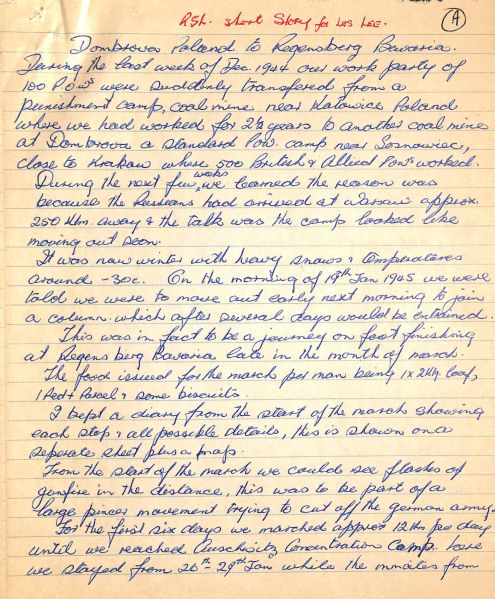 RSL. Short Story for Les Lee.
A
Dombrowa Poland to Regensberg Bavaria.
During the last weeks of Dec. 1944 our work party of
100 P.O.Ws were suddenly transfered from a
punishment camp, coal mine near Katowice Poland
where we had worked for 2½ years to another coal mine
at Dombrowa a standard Pow. camp near Sosnowiec,
close to Krakow where 500 British & Allied Pow's worked.
During the next few weeks we learned the reason was
because the Russians had arrived at Warsaw approx.
250 Klm. away & the talk was the camp looked like
moving out soon.
It was now winter with heavy snows & temperatures
around -30c. On the morning of 19th Jan 1945 we were
told we were to move out early next morning to join
a column. which after several days would be entrained.
This was in fact to be a journey on foot finishing
at Regensberg Bavaria late in the month of march.
The food issued for the march per man being 1 x 2Klg. loaf,
1 Red + Parcel & some biscuits.
I kept a diary from the start of the march showing
each stop & all possible details, this is shown on a
seperate sheet plus a map.
From the start of the march we could see flashes of
gunfire in the distance, this was to be part of a
large pincer movement trying to cut off the german army.
For the first six days we marched approx 12 hrs per day
until we reached Auschwitz Concentration Camp. here
we stayed from 26th - 29th Jan while the inmates from